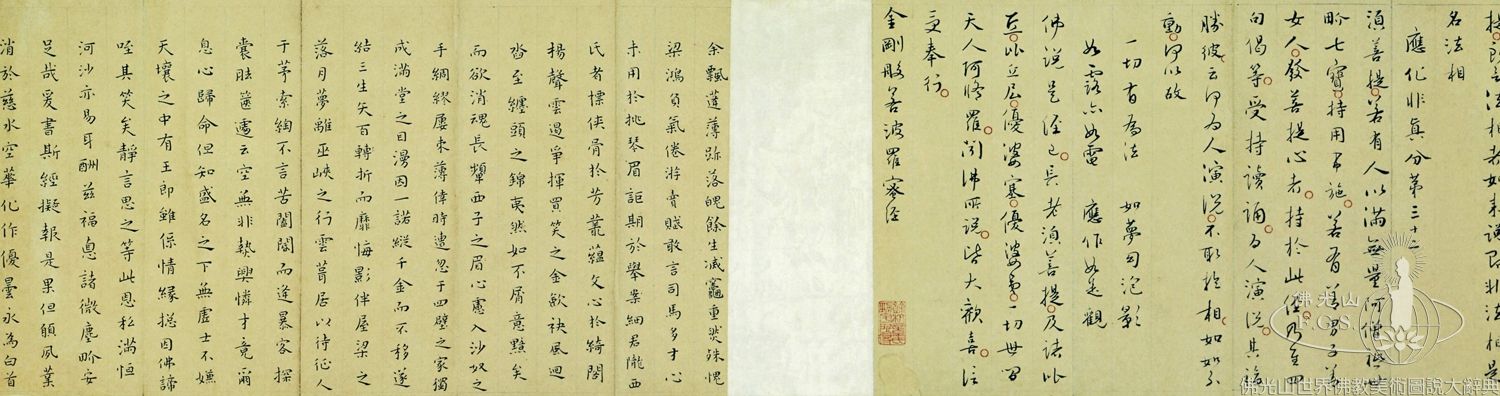 名法相
應化非真分第三十二
須菩提若有人以滿無量阿僧祇世
界七寶持用布施若有善男子善
女人發菩提心者持於此經乃至四
句偈等受持讀誦為人演說其福
勝彼云何為人演說不取於相如如不
動何以故
一切有為法 如夢幻泡影
如露亦如電 應作如是觀
佛說是經已長老須菩提及諸比
丘比丘尼優婆塞優婆夷一切世間
天人阿修羅聞佛所說皆大歡喜信
受奉行
金剛般若波羅蜜經
余飄蓬薄跡落魄餘生滅竈重然殊愧
梁鴻負氣倦游賣賦敢言司馬多才心
未用於挑琴眉詎期於舉案細君隴西
氏者慓俠骨於芳叢蘊文心於綺閣
揚聲雲遏爭揮買笑之金歛袂風迴
沓至纏頭之錦夷然如不屑意黯矣
而欲消魂長顰西子之眉心慮入沙奴之
手綢繆屢束薄倖時遭忽于四壁之家獨
成滿堂之目漫因一諾縱千金而不移遂
結三生矢百轉折而靡悔影伴屋梁之
落月夢離巫峽之行雲莒居以待征人
于茅索綯不言苦闔閭而逢暴客探
囊胠篋遽云空無非埶興憐才竟爾
息心歸命但知盛名之下無虛士不嫌
天壤之中有王郎雖係情緣摠因佛諦
咥其笑矣靜言思之等此恩私滿恒
河沙亦易耳酬茲福惠諸微塵畍安
足哉爰書斯經擬報是果但願夙業
消於慈水空華化作優曇永為白首
佛光山
F.G.S.
佛光山世界佛教美術圖說大辭典